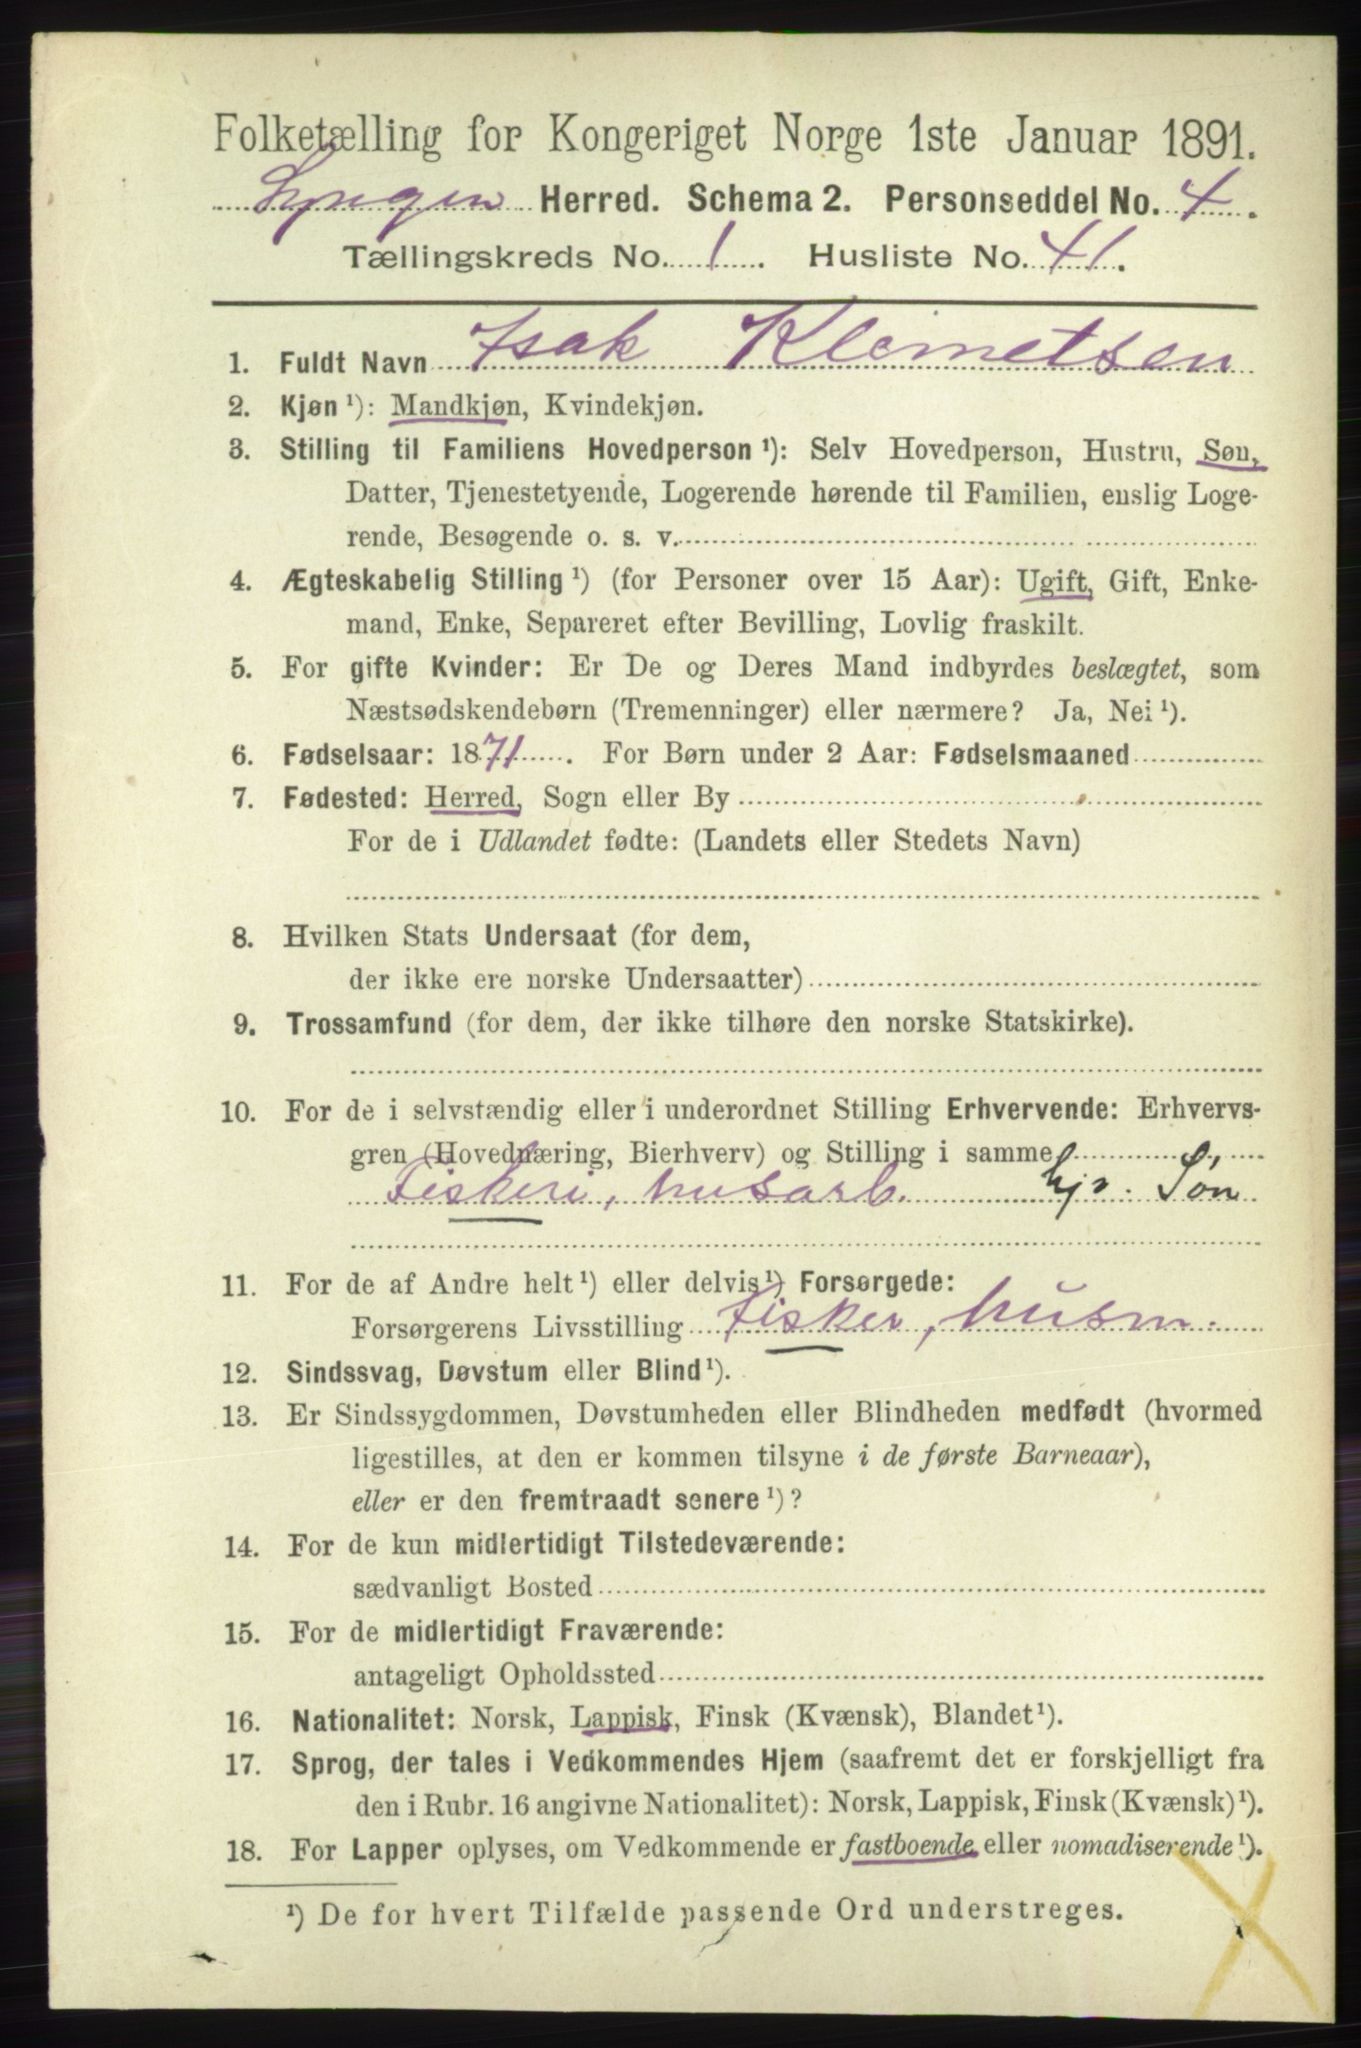 Folketælling for Kongeriget Norge 1ste Januar 1891.
Lyngen Herred. Schema 2. Personseddel No. 4.
Tællingskreds No. 1. Husliste No. 41.
1. Fuldt Navn Isak Klemetsen
2. Kjøn ¹): Mandkjøn, Kvindekjøn.
3. Stilling til Familiens Hovedperson ¹): Selv Hovedperson, Hustru, Søn,
Datter, Tjenestetyende, Logerende hørende til Familien, enslig Loge-
rende, Besøgende o. s. v.
4. Ægteskabelig Stilling ¹) (for Personer over 15 Aar): Ugift, Gift, Enke-
mand, Enke, Separeret efter Bevilling, Lovlig fraskilt.
5. For gifte Kvinder: Er De og Deres Mand indbyrdes beslægtet, som
Næstsødskendebørn (Tremenninger) eller nærmere? Ja, Nei ¹).
6. Fødselsaar: 1871. For Børn under 2 Aar: Fødselsmaaned
7. Fødested: Herred, Sogn eller By
For de i Udlandet fødte: (Landets eller Stedets Navn)
8. Hvilken Stats Undersaat (for dem,
der ikke ere norske Undersaatter)
9. Trossamfund (for dem, der ikke tilhøre den norske Statskirke).
10. For de i selvstændig eller i underordnet Stilling Erhvervende: Erhvervs-
gren (Hovednæring, Bierhverv) og Stilling i samme
Fiskeri, husarb. hjv. Søn
11. For de af Andre helt ¹) eller delvis ¹) Forsørgede:
Forsørgerens Livsstilling Fisker, husm.
12. Sindssvag, Døvstum eller Blind ¹).
13. Er Sindssygdommen, Døvstumheden eller Blindheden medfødt (hvormed
ligestilles, at den er kommen tilsyne i de første Barneaar),
eller er den fremtraadt senere ¹)?
14. For de kun midlertidigt Tilstedeværende:
sædvanligt Bosted
15. For de midlertidigt Fraværende:
antageligt Opholdssted
16. Nationalitet: Norsk, Lappisk, Finsk (Kvænsk), Blandet ¹).
17. Sprog, der tales i Vedkommendes Hjem (saafremt det er forskjelligt fra
den i Rubr. 16 angivne Nationalitet): Norsk, Lappisk, Finsk (Kvænsk) ¹).
18. For Lapper oplyses, om Vedkommende er fastboende eller nomadiserende ¹).
¹) De for hvert Tilfælde passende Ord understreges.